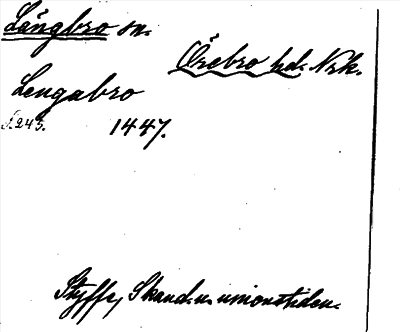 Långbro sn.
Örebro hd. Nrk.
Lengabro
s. 245. 1447.
Styffe, Skand. u. unionstiden.